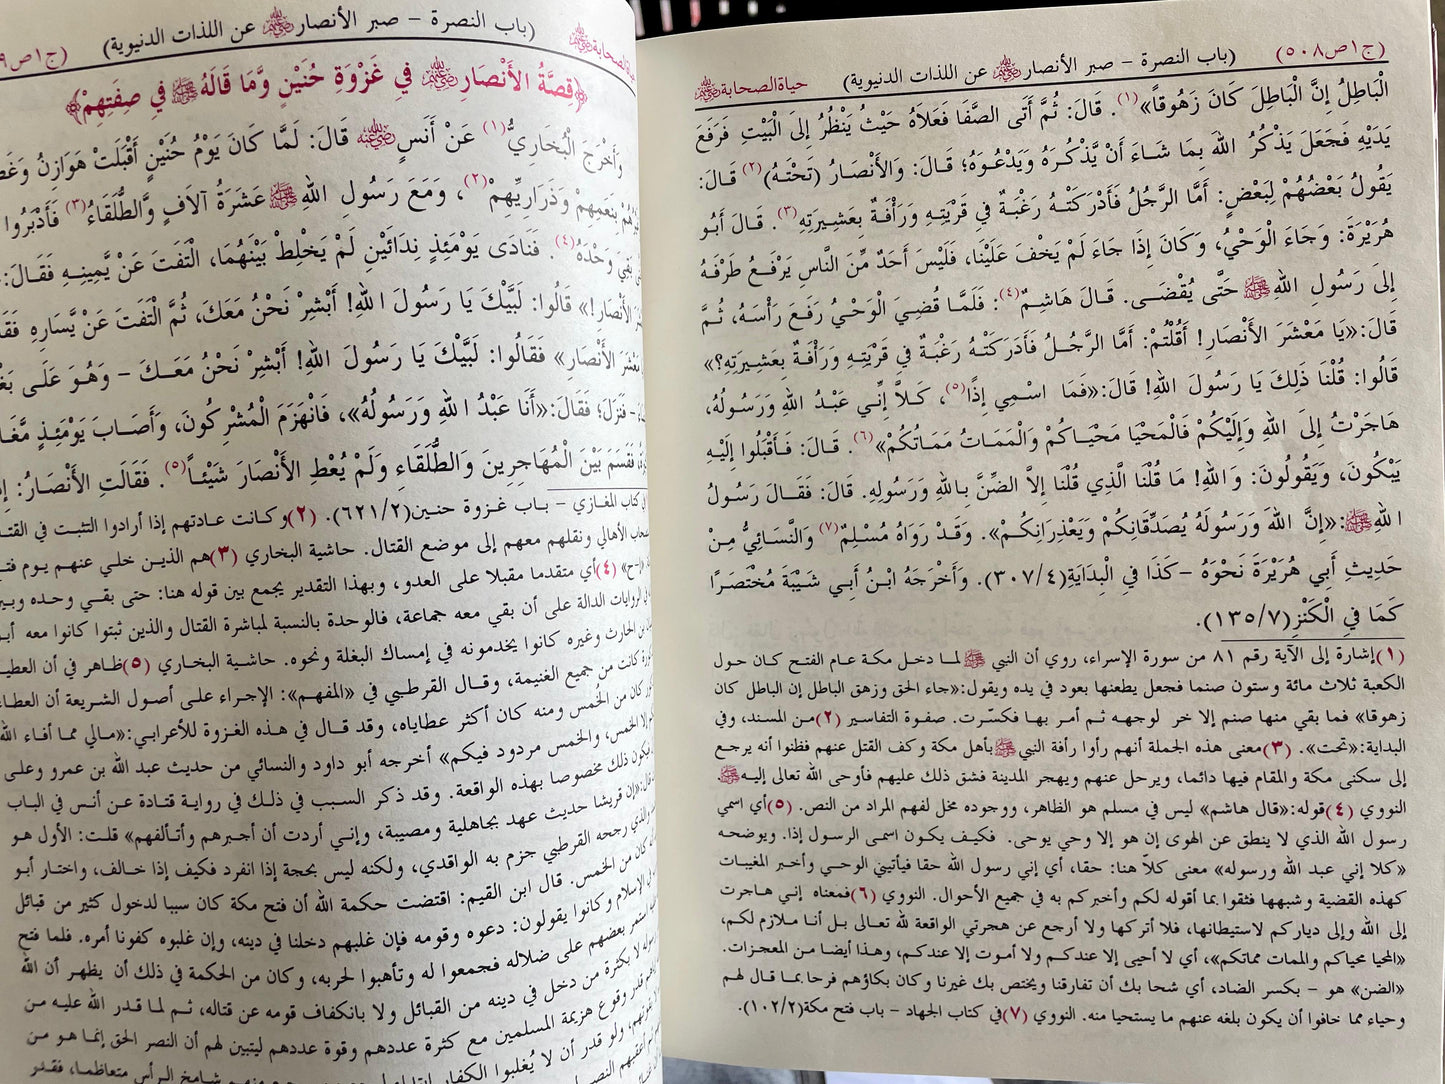 (ج١ص٥٠٨) (باب النصرة – صبر الأنصار ﷺ عن اللذات الدنيوية) حياة الصحابة ﷺ
الْبَاطِلُ إِنَّ الْبَاطِلَ كَانَ زَهُوقاً»(١). قَالَ: ثُمَّ أَتَى الصَّفَا فَعَلَاهُ حَيْثُ يَنْظُرُ إِلَى الْبَيْتِ فَرَفَعَ
يَدَيْهِ فَجَعَلَ يَذْكُرُ اللهَ بِمَا شَاءَ أَنْ يَّذْكُرَهُ وَيَدْعُوَهُ؛ قَالَ: وَالأَنْصَارُ (تَحْتَهُ)(٢) قَالَ:
يَقُولُ بَعْضُهُمْ لِبَعْضٍ: أَمَّا الرَّجُلُ فَأَدْرَكَتْهُ رَغْبَةٌ فِي قَرْيَتِهِ وَرَأْفَةٌ بِعَشِيرَتِهِ(٣). قَالَ أَبُو
هُرَيْرَةَ: وَجَاءَ الْوَحْيُ، وَكَانَ إِذَا جَاءَ لَمْ يَخْفَ عَلَيْنَا، فَلَيْسَ أَحَدٌ مِّنَ النَّاسِ يَرْفَعُ طَرْفَهُ
إِلَى رَسُولِ اللهِ ﷺ حَتَّى يُقْضَى. قَالَ هَاشِمٌ(٤): فَلَمَّا قُضِيَ الْوَحْيُ رَفَعَ رَأْسَهُ، ثُمَّ
قَالَ:«يَا مَعْشَرَ الأَنْصَارِ! أَقُلْتُمْ: أَمَّا الرَّجُلُ فَأَدْرَكَتْهُ رَغْبَةٌ فِي قَرْيَتِهِ وَرَأْفَةٌ بِعَشِيرَتِهِ؟»
قَالُوا: قُلْنَا ذَلِكَ يَا رَسُولَ اللهِ! قَالَ:«فَمَا اسْمِي إِذًا(٥)، كَلاَّ إِنِّي عَبْدُ اللهِ وَرَسُولُهُ،
هَاجَرْتُ إِلَى اللهِ وَإِلَيْكُمْ فَالْمَحْيَا مَحْيَاكُمْ وَالْمَمَاتُ مَمَاتُكُمْ»(٦). قَالَ: فَأَقْبَلُوا إِلَيْهِ
يَبْكُونَ، وَيَقُولُونَ: وَاللهِ! مَا قُلْنَا الَّذِي قُلْنَا إِلاَّ الضِّنَّ بِاللهِ وَرَسُولِهِ. قَالَ: فَقَالَ رَسُولُ
اللهِ ﷺ:«إِنَّ اللهَ وَرَسُولَهُ يُصَدِّقَانِكُمْ وَيَعْذِرَانِكُمْ». وَقَدْ رَوَاهُ مُسْلِمٌ(٧) وَالنَّسَائِيُّ مِنْ
حَدِيثِ أَبِي هُرَيْرَةَ نَحْوَهُ –كَذَا فِي الْبِدَايَةِ(٣٠٧/٤). وَأَخْرَجَهُ ابْنُ أَبِي شَيْبَةَ مُخْتَصَرًا
كَمَا فِي الْكَنْزِ(١٣٥/٧).
(١)إشارة إلى الآية رقم ٨١ من سورة الإسراء، روي أن النبي ﷺ لما دخل مكة عام الفتح كان حول
الكعبة ثلاث مائة وستون صنما فجعل يطعنها بعود في يده ويقول:«جاء الحق وزهق الباطل إن الباطل كان
زهوقا» فما بقي منها صنم إلا خر لوجهه ثم أمر بها فكسّرت. صفوة التفاسير (٢)من المسند، وفي
البداية:«تحت». (٣)معنى هذه الجملة أنهم رأوا رأفة النبي ﷺ بأهل مكة وكف القتل عنهم فظنوا أنه يرجع
إلى سكنى مكة والمقام فيها دائما، ويرحل عنهم ويهجر المدينة فشق ذلك عليهم فأوحى الله تعالى إليه ﷺ
النووي (٤)قوله:«قال هاشم» ليس في مسلم هو الظاهر، ووجوده مخل لفهم المراد من النص. (٥)أي اسمي
رسول الله الذي لا ينطق عن الهوى إن هو إلا وحي يوحى. فكيف يكون اسمى الرسول إذا. ويوضحه
«كلا إني عبد الله ورسوله» معنى كلاّ هنا: حقا، أي إني رسول الله حقا فيأتيني الوحي وأخبر المغيبات
كهذه القضية وشبهها فثقوا بما أقوله لكم وأخبركم به في جميع الأحوال. النووي (٦)فمعناه إني هاجرت
إلى الله وإلى دياركم لاستيطانها، فلا أتركها ولا أرجع عن هجرتي الواقعة لله تعالى بل أنا ملازم لكم،
«المحيا محياكم والممات مماتكم»، أي لا أحيى إلا عندكم ولا أموت إلا عندكم، وهذا أيضا من المعجزات.
«الضن» هو – بكسر الضاد، أي شحا بك أن تفارقنا ويختص بك غيرنا وكان بكاؤهم فرحا بما قال لهم
وحياء مما خافوا أن يكون بلغه عنهم ما يستحيا منه. النووي (٧)في كتاب الجهاد – باب فتح مكة(١٠٢/٢).
(باب النصرة – صبر الأنصار ﷺ عن اللذات الدنيوية) (ج١ص
﴿قِصَّةُ الأَنْصَارِ ﷺ فِي غَزْوَةِ حُنَيْنٍ وَّمَا قَالَهُ ﷺ فِي صِفَتِهِمْ﴾
وَأَخْرَجَ الْبُخَارِيُّ(١) عَنْ أَنَسٍ ﷺ قَالَ: لَمَّا كَانَ يَوْمُ حُنَيْنٍ أَقْبَلَتْ هَوَازِنُ
بِنَعَمِهِمْ وَذَرَارِيِّهِمْ(٢)، وَمَعَ رَسُولِ اللهِ ﷺ عَشَرَةُ آلاَفٍ وَّالطُّلَقَاءُ(٣) فَأَدْبَرُوا
بَقِيَ وَحْدَهُ(٤). فَنَادَى يَوْمَئِذٍ نِدَائَيْنِ لَمْ يَخْلِطْ بَيْنَهُمَا، الْتَفَتَ عَنْ يَّمِينِهِ فَقَالَ:
الأَنْصَارِ!» قَالُوا: لَبَّيْكَ يَا رَسُولَ اللهِ! أَبْشِرْ نَحْنُ مَعَكَ، ثُمَّ الْتَفَتَ عَنْ يَّسَارِهِ
مَعْشَرَ الأَنْصَارِ» فَقَالُوا: لَبَّيْكَ يَا رَسُولَ اللهِ! أَبْشِرْ نَحْنُ مَعَكَ – وَهُوَ عَلَى
– فَنَزَلَ؛ فَقَالَ:«أَنَا عَبْدُ اللهِ وَرَسُولُهُ»، فَانْهَزَمَ الْمُشْرِكُونَ، وَأَصَابَ يَوْمَئِذٍ
فَقَسَمَ بَيْنَ الْمُهَاجِرِينَ وَالطُّلَقَاءِ وَلَمْ يُعْطِ الأَنْصَارَ شَيْئاً(٥). فَقَالَتِ الأَنْصَارُ:
في كتاب المغازي – باب غزوة حنين(٦٢١/٢). (٢)وكانت عادتهم إذا أرادوا التثبت في
الأهالي ونقلهم معهم إلى موضع القتال. حاشية البخاري (٣)هم الذين خلي عنهم يوم
(٤)أي متقدما مقبلا على العدو، وبهذا التقدير يجمع بين قوله هنا: حتى بقي وحده
الروايات الدالة على أن بقي معه جماعة، فالوحدة بالنسبة لمباشرة القتال والذين ثبتوا كانوا معه
بن الحارث وغيره كانوا يخدمونه في إمساك البغلة ونحوه. حاشية البخاري (٥)ظاهر في أن
كانت من جميع الغنيمة، وقال القرطبي في «المفهم»: الإجراء على أصول الشريعة أن
كان من الخُمس ومنه كان أكثر عطاياه، وقد قال في هذه الغزوة للأعرابي:«مالي مما أفاء الله
إلا الخمس، والخمس مردود فيكم» أخرجه أبو داود والنسائي من حديث عبد الله بن عمرو وعلى
يكون ذلك مخصوصا بهذه الواقعة. وقد ذكر السبب في ذلك في رواية قتادة عن أنس في الباب
«إن قريشا حديث عهد بجاهلية ومصيبة، وإني أردت أن أجبرهم وأتألفهم» قلت: الأول هو
رجحه القرطبي جزم به الواقدي، ولكنه ليس بحجة إذا انفرد فكيف إذا خالف، واختار أبو
كان من الخمس. قال ابن القيم: اقتضت حكمة الله أن فتح مكة كان سببا لدخول كثير من قبائل
الإسلام وكانوا يقولون: دعوه وقومه فإن غلبهم دخلنا في دينه، وإن غلبوه كفونا أمره. فلما فتح
استمر بعضهم على ضلاله فجمعوا له وتأهبوا لحربه، وكان من الحكمة في ذلك أن يظهر أن الله
لا بكثرة من دخل في دينه من القبائل ولا بانكفاف قومه عن قتاله، ثم لما قدر الله عليه من
قدر وقوع هزيمة المسلمين مع كثرة عددهم وقوة عددهم ليتبين لهم أن النصر الحق إنما هو من
ولو قدر أن لا يُغلبوا الكفار
شامخ الرأس متعاظما،